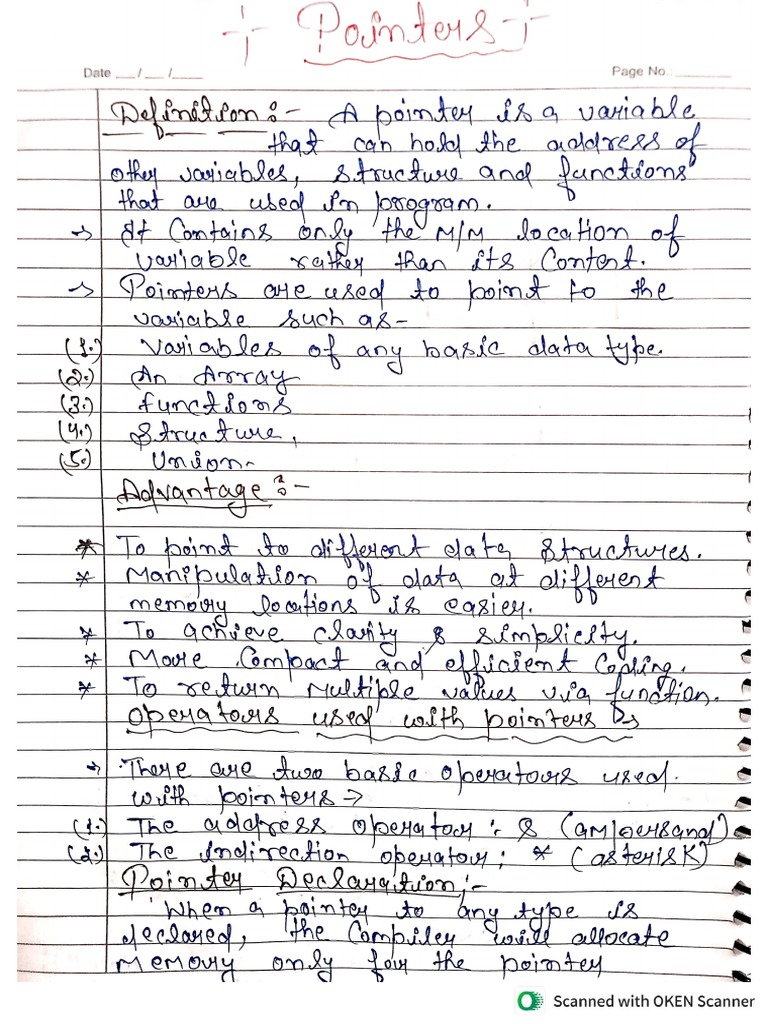 Pointers
Date __/__/__
Page No.: ______
Definition :- A pointer is a variable
that can hold the address of
other variables, structure and functions
that are used in program.
→ It Contains only the M/M location of
variable rather than its Content.
→ Pointers are used to point to the
variable such as-
(1.) Variables of any basic data type.
(2.) An Array
(3.) functions
(4.) Structure,
(5.) Union-
Advantage :-
* To point to different data structures.
* Manipulation of data at different
memory locations is easier.
* To achieve clarity & simplicity.
* More Compact and efficient Coding.
* To return Multiple values via function.
Operators used with pointers
→ There are two basic operators used
with pointers →
(1.) The address operator : & (ampersand)
(2.) The indirection operator : * (asterisk)
Pointer Declaration :-
When a pointer to any type is
declared, the Compiler will allocate
Memory only for the pointer
Scanned with OKEN Scanner